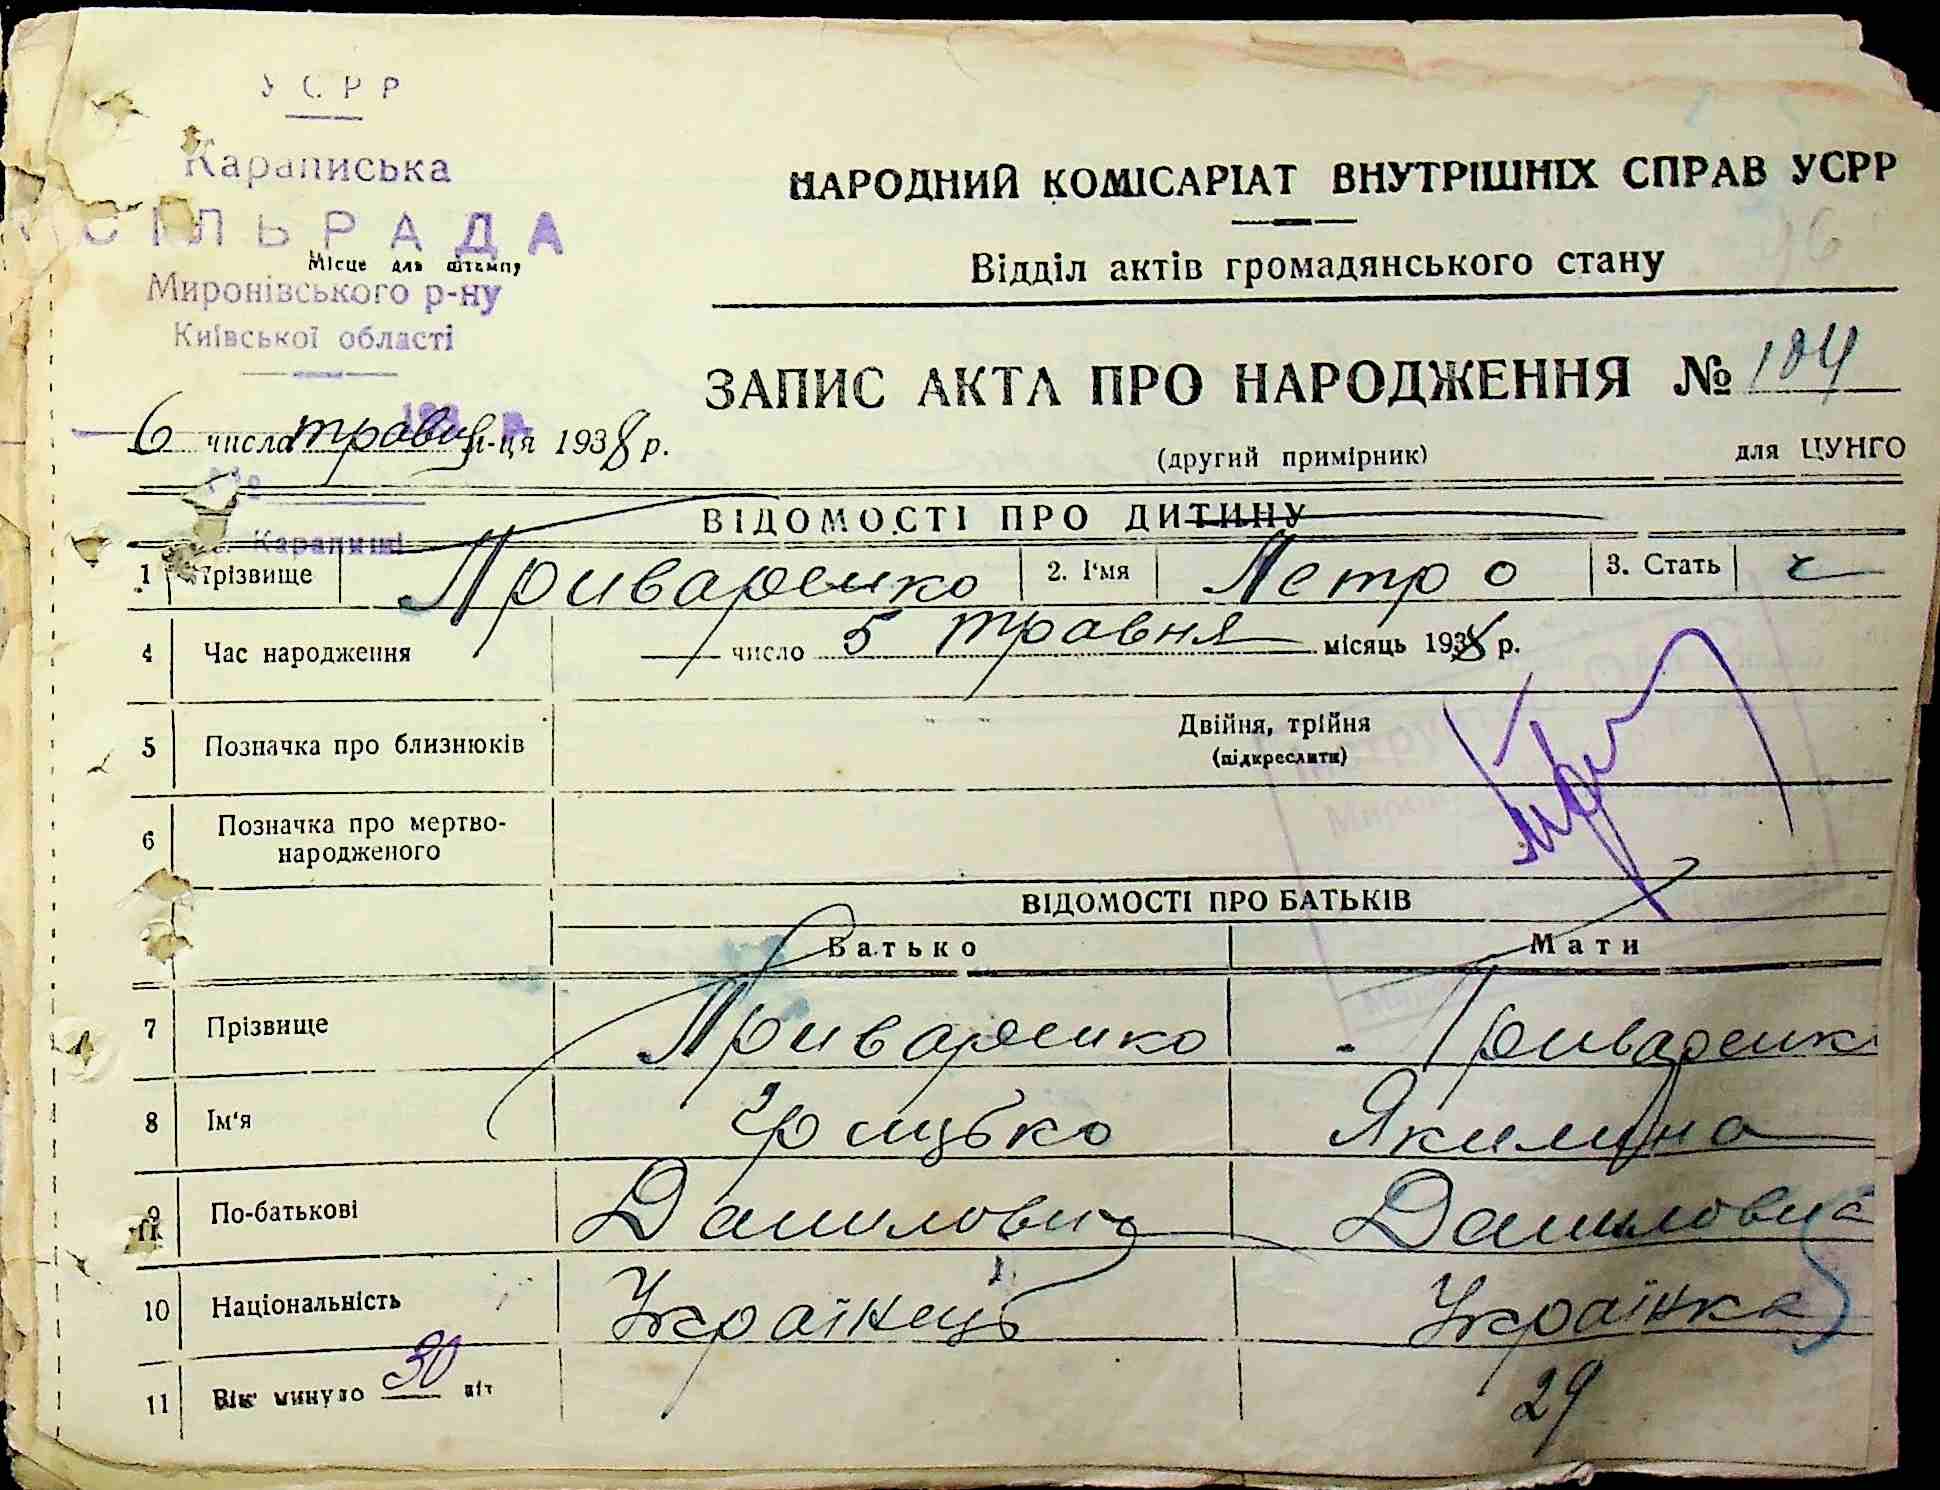 УСРР
Караписька
СІЛЬРАДА
Місце для штампу
Миронівського р-ну
Київської області
НАРОДНИЙ КОМІСАРІАТ ВНУТРІШНІХ СПРАВ УСРР
Відділ актів громадянського стану
96
ЗАПИС АКТА ПРО НАРОДЖЕННЯ № 104
6 числа травня м-ця 1938 р.
(другий примірник) для ЦУНГО
№
с. Карапиші
ВІДОМОСТІ ПРО ДИТИНУ
1 Прізвище Приваренко 2. І'мя Петро 3. Стать ч
4 Час народження число 5 травня місяць 1938 р.
5 Позначка про близнюків Двійня, трійня
(підкреслити)
6 Позначка про мертво-
народженого
ВІДОМОСТІ ПРО БАТЬКІВ
Батько Мати
7 Прізвище Приваренко Приваренк
8 Ім'я Грицько Якилина
9 По-батькові Данилович Даниловна
10 Національність Українець Українка
11 Вік минуло 30 літ 29